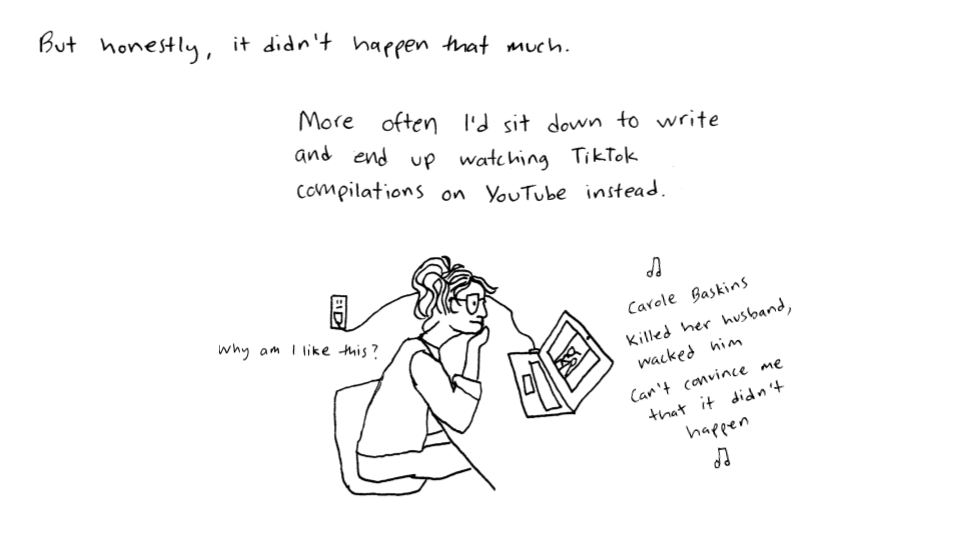 But honestly, it didn't happen that much.
More often I'd sit down to write
and end up watching TikTok
compilations on YouTube instead.
Why am I like this?
Carole Baskins
Killed her husband,
wacked him
Can't convince me
that it didn't
happen